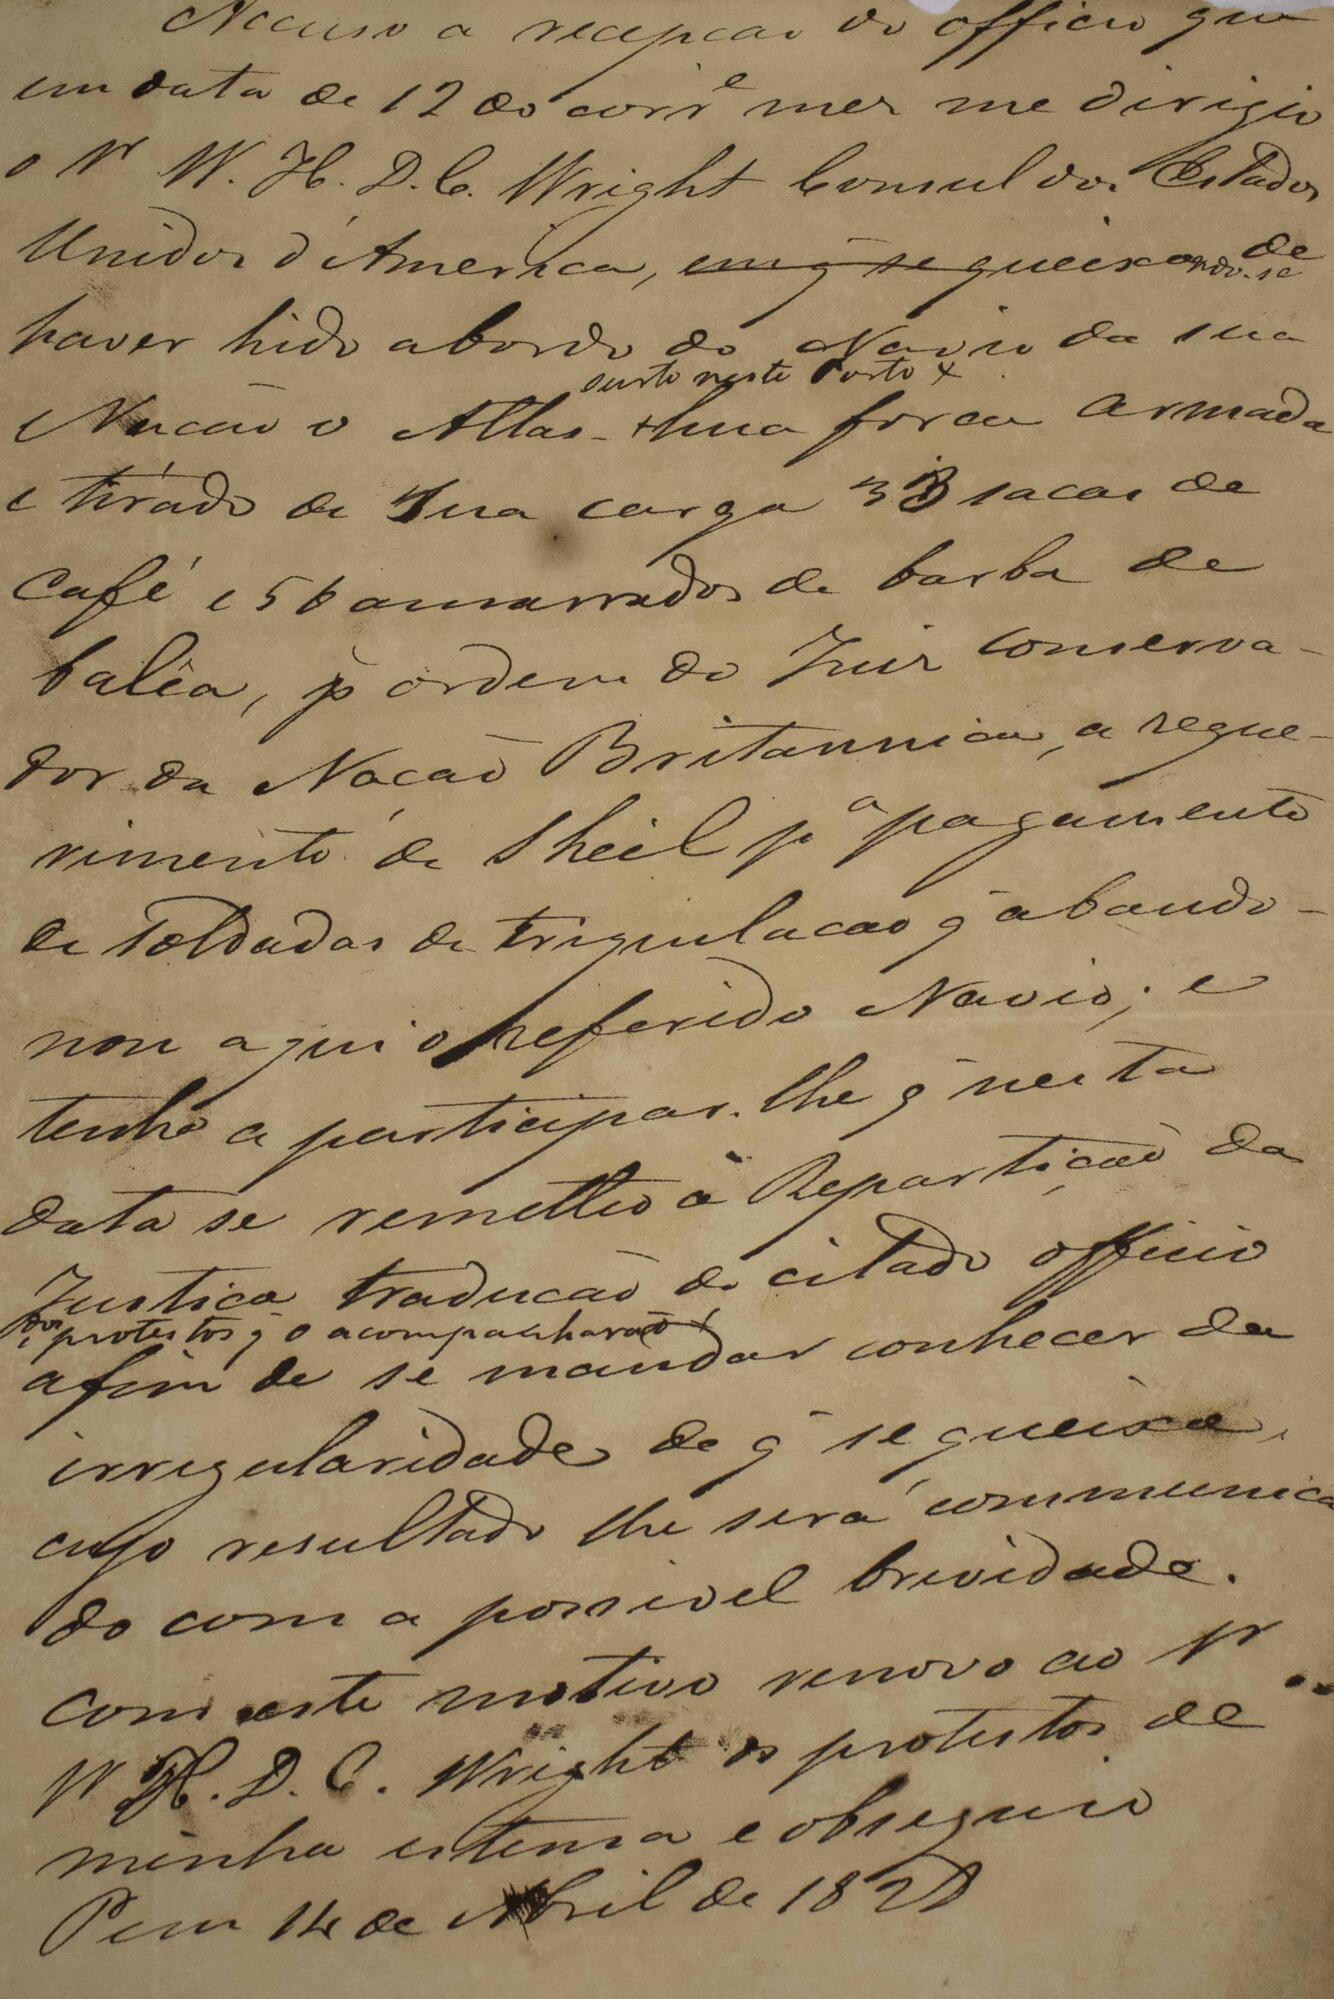 Accuso a recepcao do officio que
em data de 12 do corr.e mez me dirigio
o Sr W. H. D. C. Wright Consul dos Estados
Unidos d'America, em q̃ se queixando-se de
haver hido abordo do Navio da sua
surto neste Porto x
Nacaõ o Atlas - + hua forca armada
e tirado de sua carga 33 sacas de
Café e 56 amarrados de barba de
balêa, p ordem do Juiz conserva-
dor da Nacaõ Britannica, a reque-
rimento de Sheil p.a pagamento
de soldadas de tripulacao q̃ abando-
nou aqui o referido Navio; e
tenho a participar-lhe q̃ nesta
data se remetteo á Repartiçaõ da
Justiça traducaõ do citado officio
e dos protestos q̃ o acompanharaõ x
afim de se mandar conhecer da
irregularidade de q̃ se queixa,
cujo resultado lhe será communica
do com a possivel brividade.
Com este motivo renovo ao Sr
W H. D. C. Wright os protestos de
minha estima e obsequio
Pem 14 de Abril de 1828